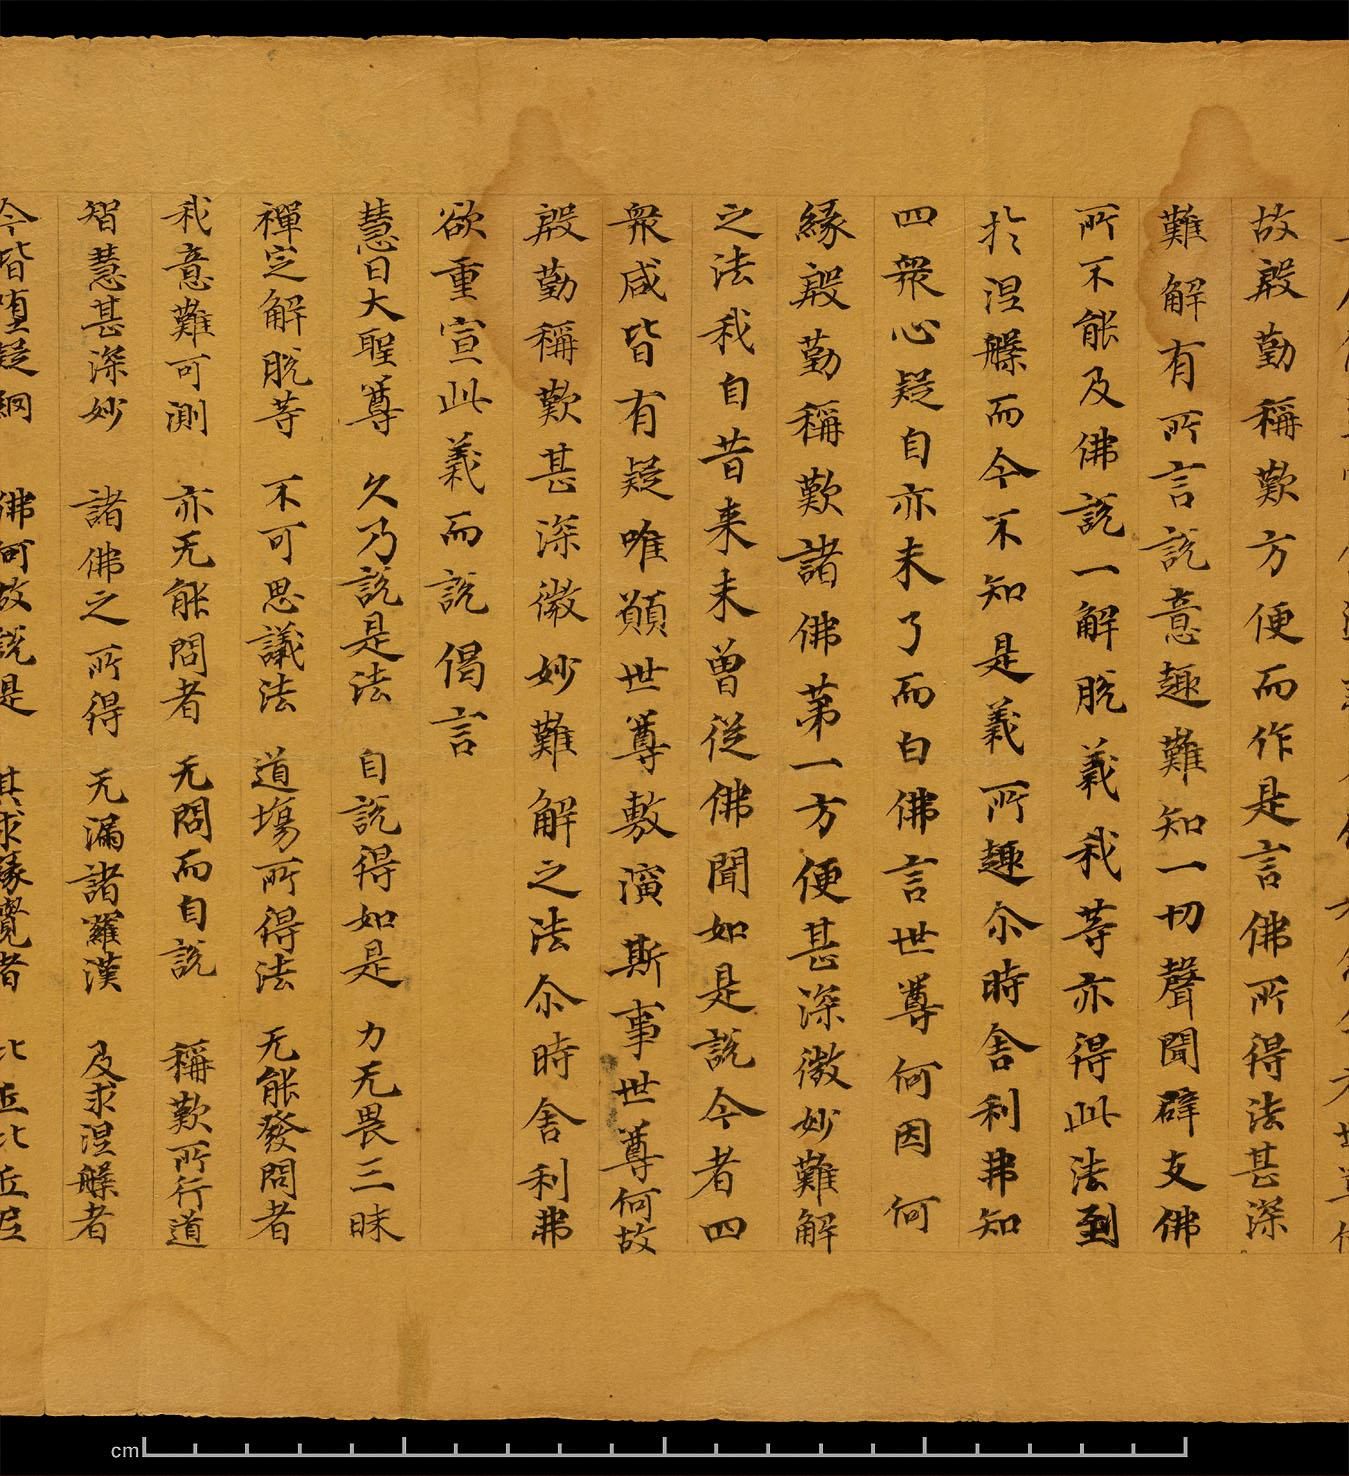 故慇勤稱歎方便而作是言佛所得法甚深
難解有所言說意趣難知一切聲聞辟支佛
所不能及佛說一解脫義我等亦得此法到
於涅槃而今不知是義所趣尒時舍利弗知
四衆心疑自亦未了而白佛言世尊何因何
緣慇勤稱歎諸佛第一方便甚深微妙難解
之法我自昔來未曾從佛聞如是說今者四
衆咸皆有疑唯願世尊敷演斯事世尊何故
慇勤稱歎甚深微妙難解之法尒時舍利弗
欲重宣此義而說偈言
慧日大聖尊 久乃說是法 自說得如是 力无畏三昧
禪定解脫等 不可思議法 道場所得法 无能發問者
我意難可測 亦无能問者 无問而自說 稱歎所行道
智慧甚深妙 諸佛之所得 无漏諸羅漢 及求涅槃者
今皆墮疑網 佛何故說是 其求緣覺者 比丘比丘尼
cm